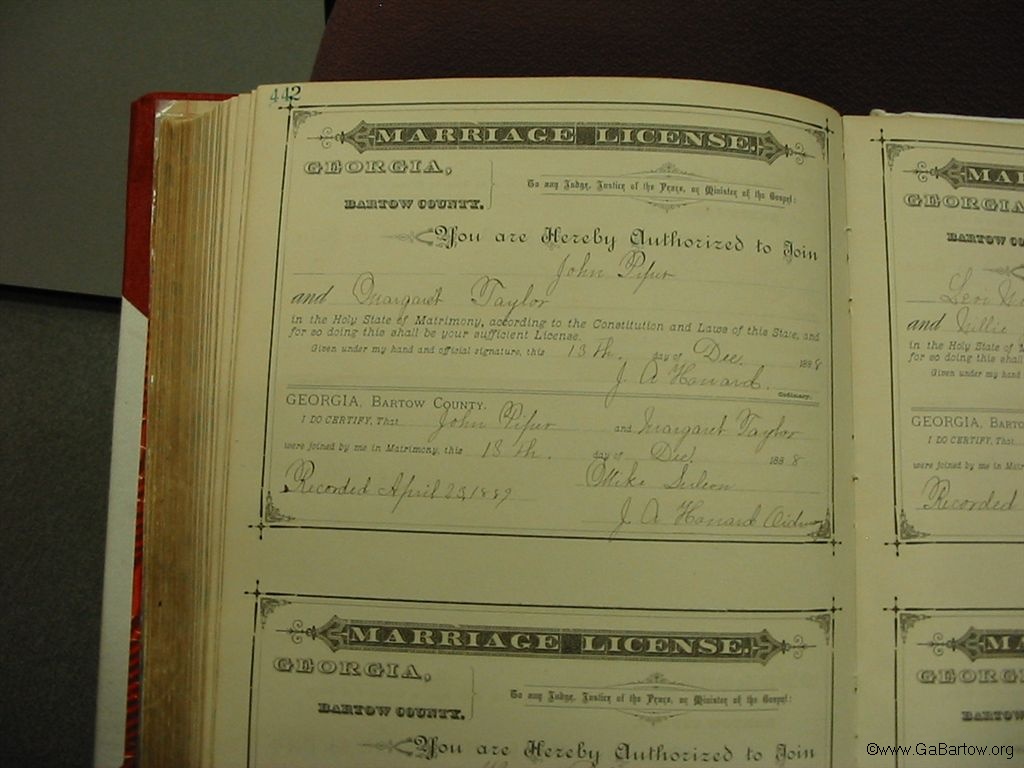 442
MARRIAGE LICENSE.
GEORGIA,
BARTOW COUNTY.
To any Judge, Justice of the Peace, or Minister of the Gospel:
You are Hereby Authorized to Join
John Piper
and Margaret Taylor
in the Holy State of Matrimony, according to the Constitution and Laws of this State, and
for so doing this shall be your sufficient License.
Given under my hand and official signature, this 13th. day of Dec. 1888
J. A Howard. Ordinary.
GEORGIA, BARTOW COUNTY.
I DO CERTIFY, That John Piper and Margaret Taylor
were joined by me in Matrimony, this 13th. day of Dec. 1888
Recorded April 23, 1889 Mike
J. A Howard
MARRIAGE LICENSE.
GEORGIA,
BARTOW COUNTY.
To any Judge, Justice of the Peace, or Minister of the Gospel:
You are Hereby Authorized to Join
MA
GEORGIA
BARTOW CO
Levi
and Willie
in the Holy State of M
for so doing this shall
Given under my hand
GEORGIA, BARTO
I DO CERTIFY, That
were joined by me in Matri
Recorded
MA
GEORG
BARTOW
You are
©www.GaBartow.org